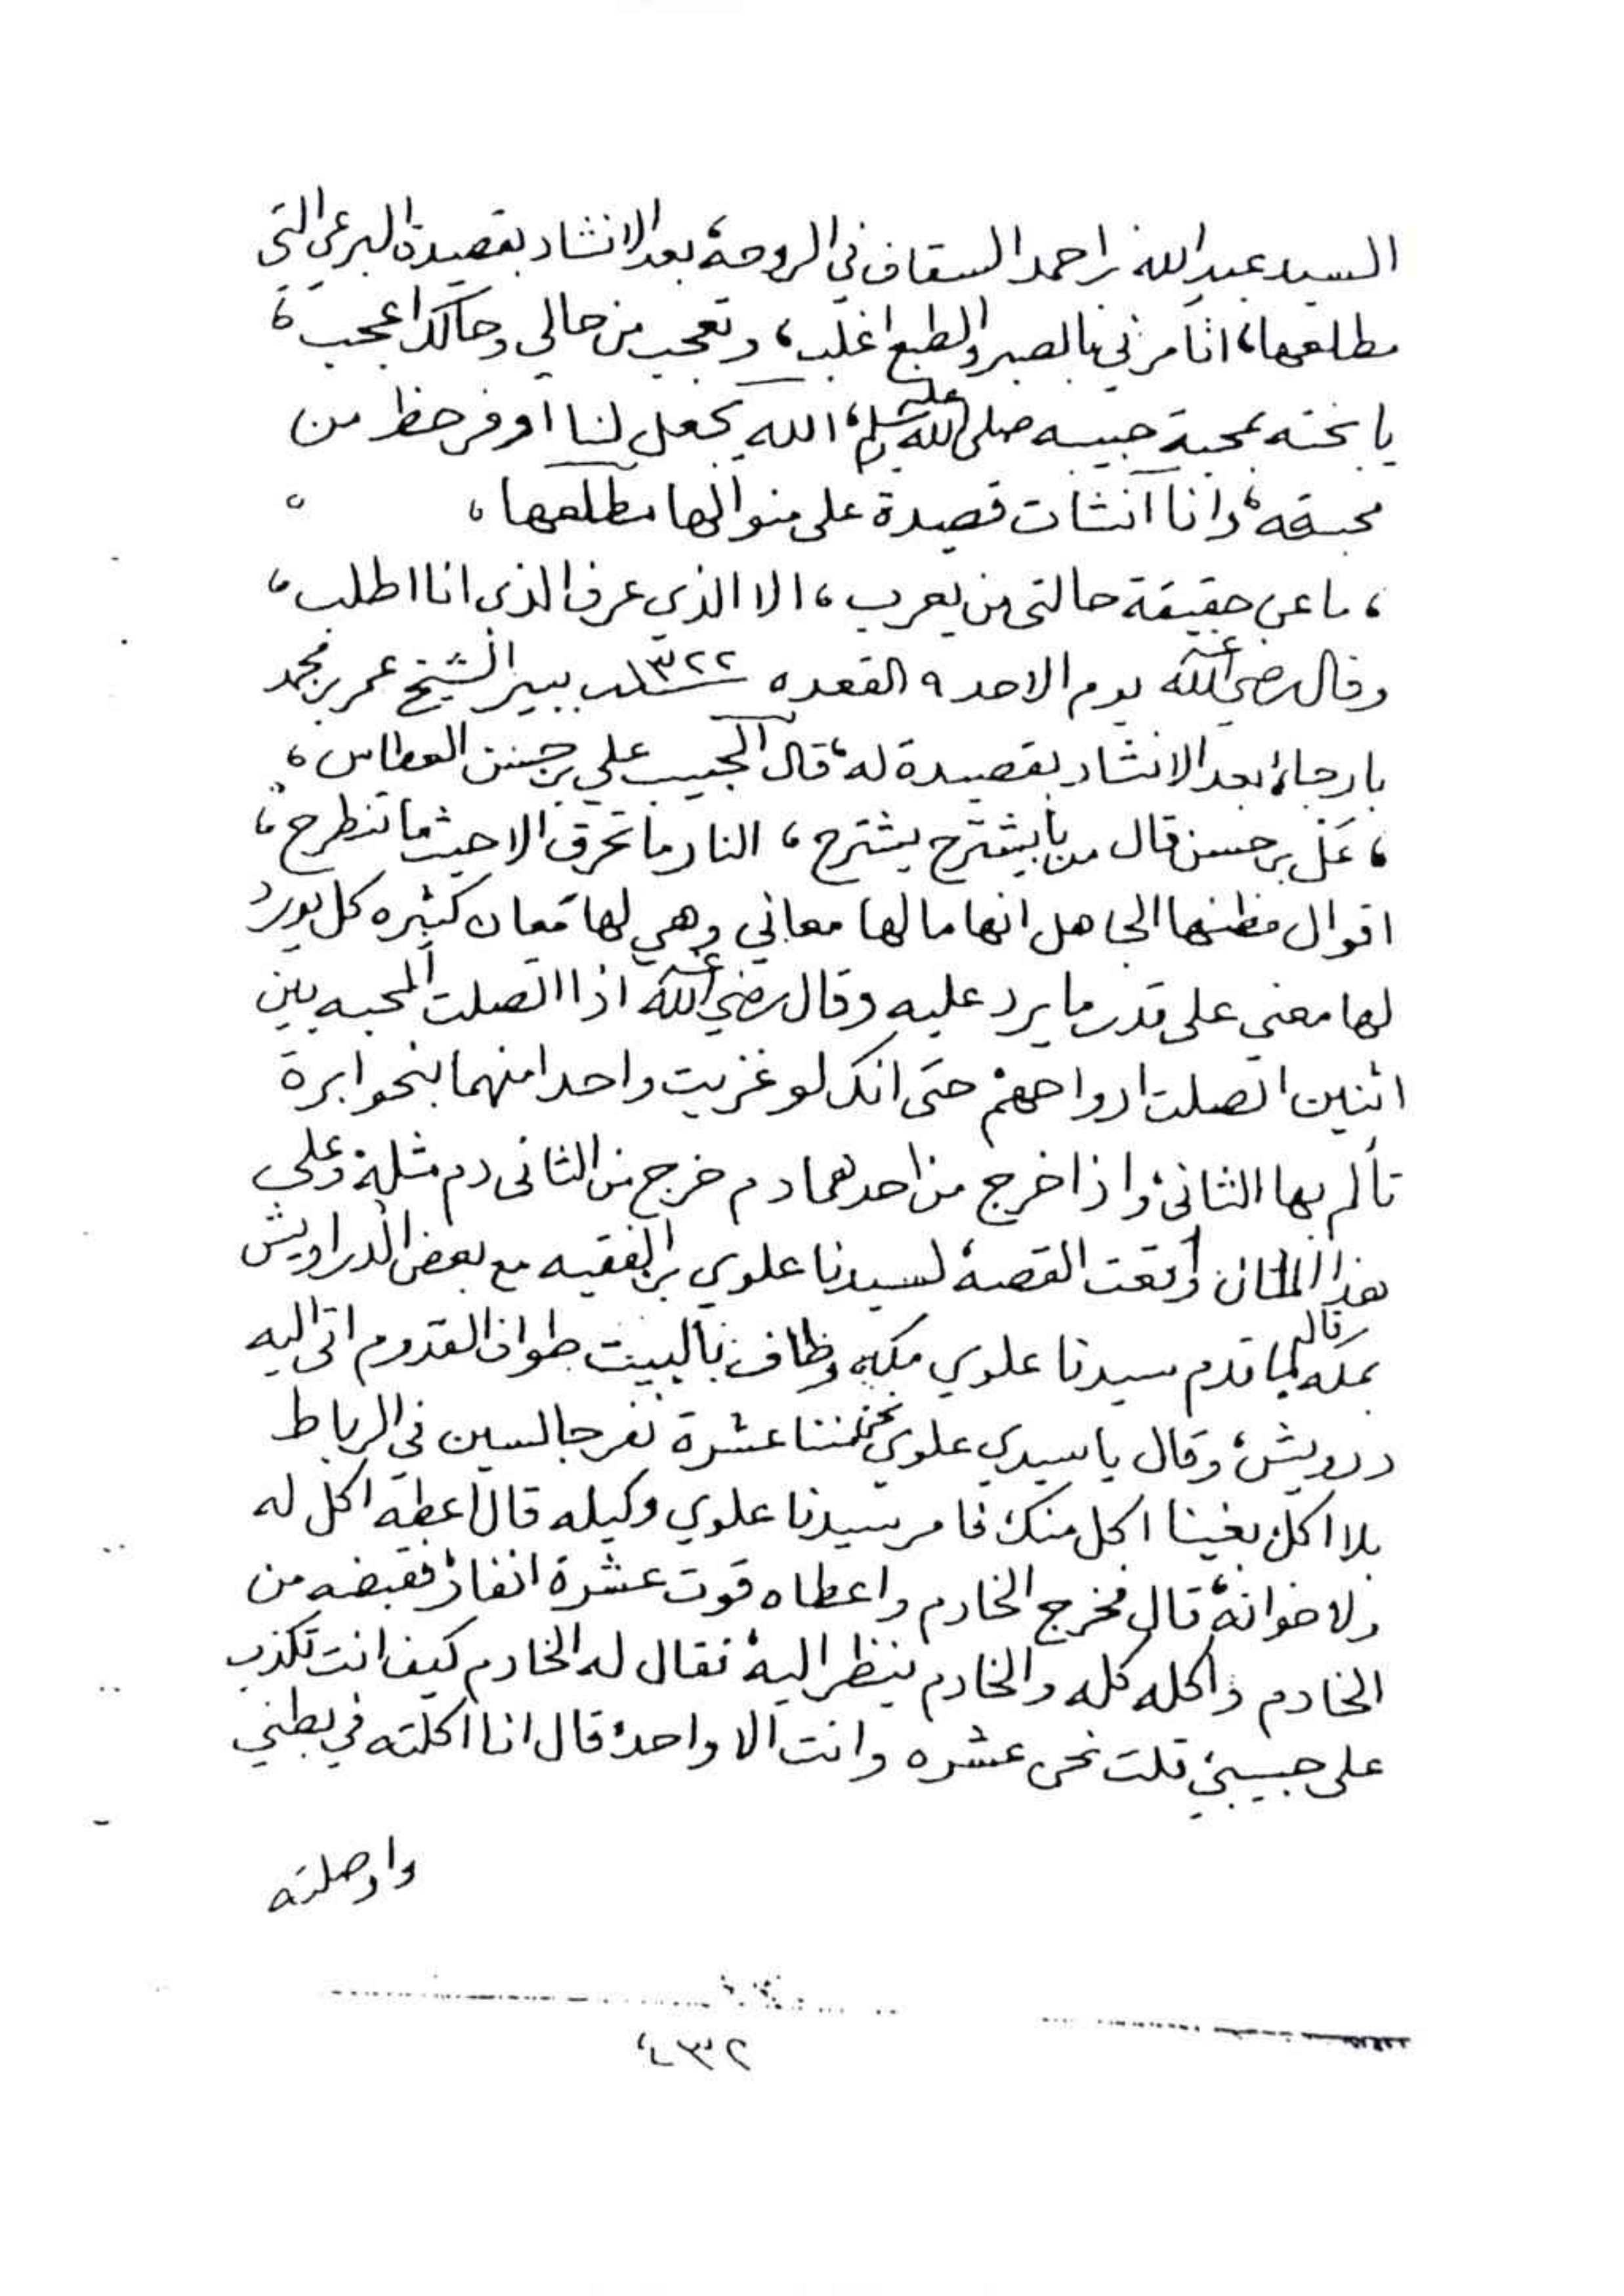 السيد عبدالله بن احمد السقاف في الروحة، بعد الانشاد بقصيدة البرعي التي
مطلعها، اتأمرني بالصبر والطبع اغلب، وتعجب من حالي وحالك اعجب،
يا بخته بمحبة حبيبه صلى الله عليه وسلم، الله يجعل لنا اوفر حظ من
محبته، وانا أنشات قصيدة على منوالها مطلعها،
، ما عن حقيقة حالتي من يعرب، الا الذي عرف الذي انا اطلب،
وقال رضي الله عنه يوم الاحد ٩ القعده ١٣٢٢ ببير الشيخ عمر بن محمد
بارجاء، بعد الانشاد بقصيدة له، قال الحبيب علي بن حسن العطاس،
، عَلي بن حسن قال من بايشترح يشترح، النار ما تحرق الا حيث ما تنطرح،
اقوال فظنها الجاهل انها مالها معاني وهي لها معان كثيره كل يورد
لها معنى على قدر ما يرد عليه وقال رضي الله عنه اذا اتصلت المحبه بين
اثنين اتصلت ارواحهم حتى انك لو غزيت واحدا منهما بنحو ابرة
تألم بها الثاني، واذا خرج من احدهما دم خرج من الثاني دم مثله، وعلى
هذا المثان وقعت القصة، لسيدنا علوي بن الفقيه مع بعض الدراويش
بمكه، قال لما قدم سيدنا علوي مكه، وطاف بالبيت طواف القدوم اتى اليه
درويش، وقال يا سيدي علوي نحننا عشرة نفر جالسين في الرباط
بلا اكل بغينا اكل منك، فامر سيدنا علوي وكيله قال اعطه اكل له
ولاخوانه، قال فخرج الخادم واعطاه قوت عشرة انفار، فقبضه من
الخادم واكله كله والخادم ينظر اليه، فقال له الخادم كيف انت تكذب
على حبيبي، قلت نحن عشره وانت الا واحد، قال انا اكلته في بطني
واوصلته
٢٣٤